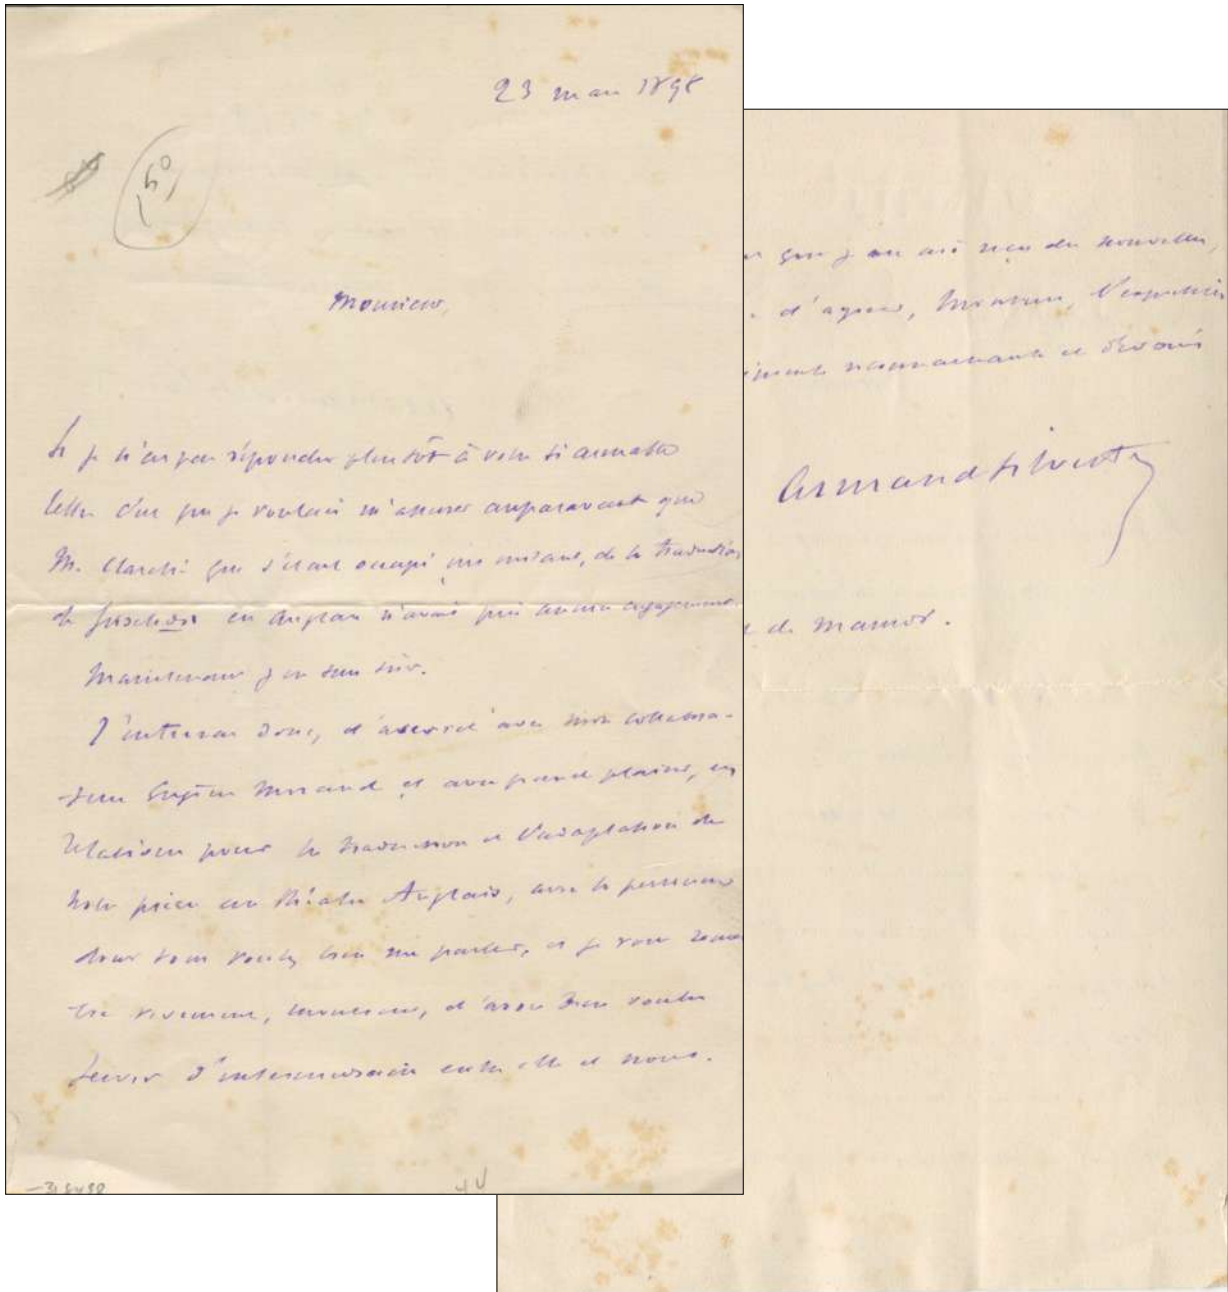 23 mars 1898
150
Monsieur,
Si je n'ai pas répondu plus tôt à votre si aimable
lettre c'est que je voulais m'assurer auparavant que
M. qui s'était occupé un instant, de la traduction
de en Anglais n'avait pris aucun engagement.
Maintenant j'en suis sûr.
J'entrerai donc, d'accord avec mon collabora-
teur Eugène Morand et avec grand plaisir, en
relations pour la traduction et l'adaptation de
notre pièce au théâtre Anglais, avec la personne
dont vous voulez bien me parler, et je vous
très vivement, Monsieur, d'avoir bien voulu
servir d'intermédiaire entre elle et nous.
44
que j'en ai reçu des nouvelles,
d'agréer, Monsieur, l'expression
reconnaissants et dévoués
Armand Silvestre
de Mamor.